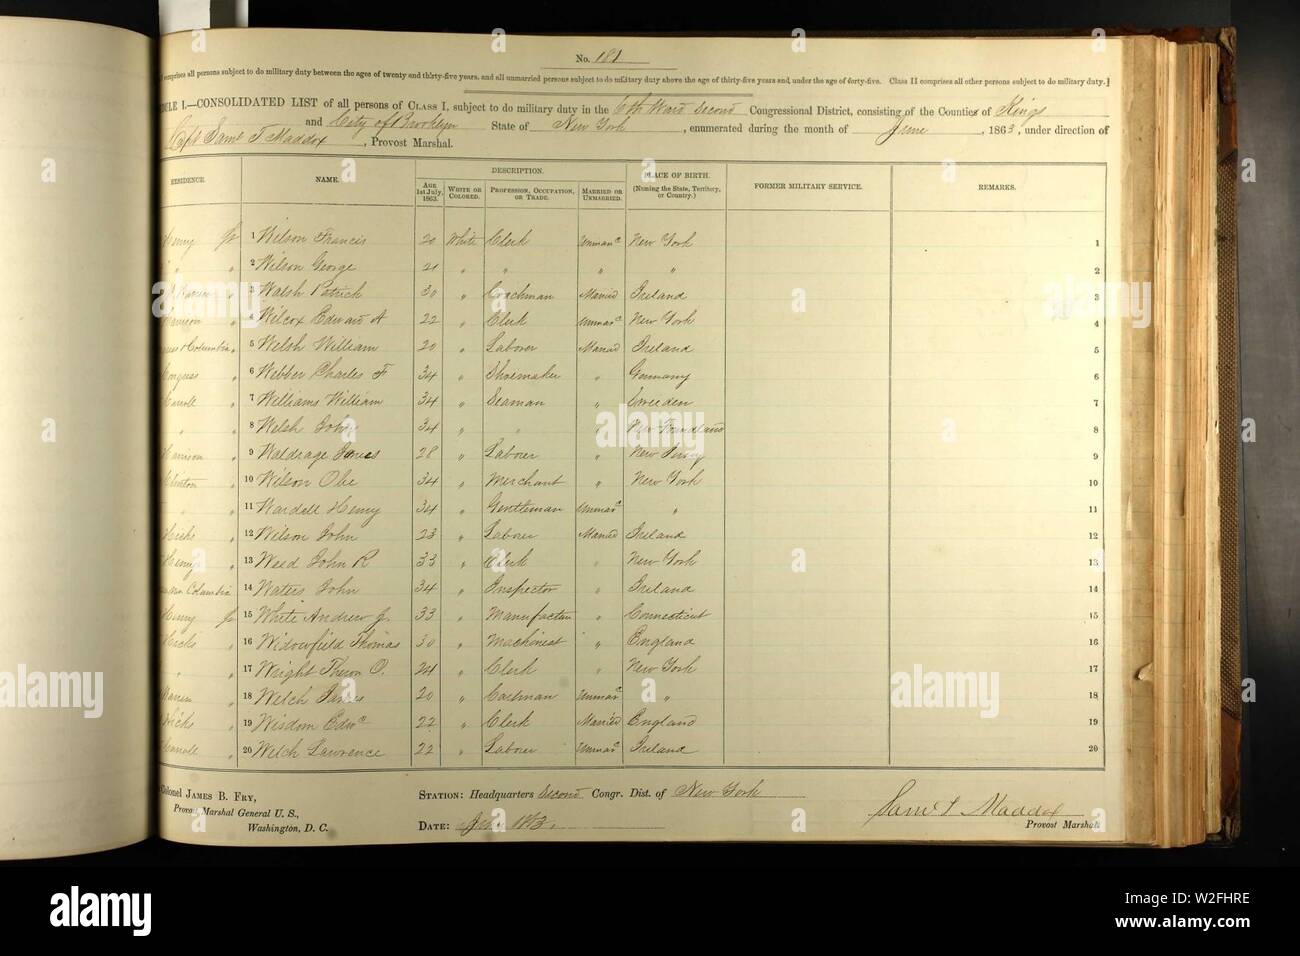 No. 181
comprises all persons subject to do military duty between the ages of twenty and thirty-five years, and all unmarried persons subject to do military duty above the age of thirty-five years and under the age of forty-five. Class II comprises all other persons subject to do military duty.]
DULE I.—CONSOLIDATED LIST of all persons of CLASS I, subject to do military duty in the 6th Ward Second Congressional District, consisting of the Counties of Kings
and City of Brooklyn State of New York, enumerated during the month of June, 1863, under direction of
Capt Saml T Maddox, Provost Marshal.
RESIDENCE. NAME. DESCRIPTION. AGE 1st July, 1863. WHITE OR COLORED. PROFESSION, OCCUPATION, OR TRADE. MARRIED OR UNMARRIED. PLACE OF BIRTH. (Naming the State, Territory, or Country.) FORMER MILITARY SERVICE. REMARKS.
Henry 1 Wilson Francis 20 White Clerk Unmard New York 1
" " 2 Wilson George 21 " " " " 2
Warren " 3 Walsh Patrick 30 " Coachman Married Ireland 3
Harrison " 4 Wilcox Edward A 22 " Clerk Unmard New York 4
& Columbia " 5 Welsh William 20 " Laborer Married Ireland 5
Congress " 6 Webber Charles F 34 " Shoemaker " Germany 6
Carroll " 7 Williams William 34 " Seaman " Sweeden 7
" " 8 Welsh John 34 " " " New Foundland 8
Harrison " 9 Waldrage James 28 " Laborer " New Jersey 9
Clinton " 10 Wilson Obe 34 " Merchant " New York 10
" " 11 Wardell Henry 34 " Gentleman Unmard " 11
Hicks " 12 Wilson John 23 " Laborer Married Ireland 12
Henry " 13 Weed John R 33 " Clerk " New York 13
Columbia 14 Waters John 34 " Inspector " Ireland 14
Henry 15 White Andrew J. 33 " Manufactur " Connecticut 15
Hicks " 16 Widowfield Thomas 30 " Machinest " England 16
" " 17 Wright Theron O. 24 " Clerk " New York 17
Warren " 18 Welch James 20 " Carman Unmard " 18
Hicks " 19 Wisdom Edwd 22 " Clerk Married England 19
Carroll " 20 Welch Lawrence 22 " Laborer Unmard Ireland 20
Colonel JAMES B. FRY, STATION: Headquarters Second Congr. Dist. of New York
Provost Marshal General U. S., Saml T Maddox
Washington, D. C. DATE: June 1863. Provost Marshal
alamy
alamy
alamy
alamy
alamy
a
W2FHRE
www.alamy.com